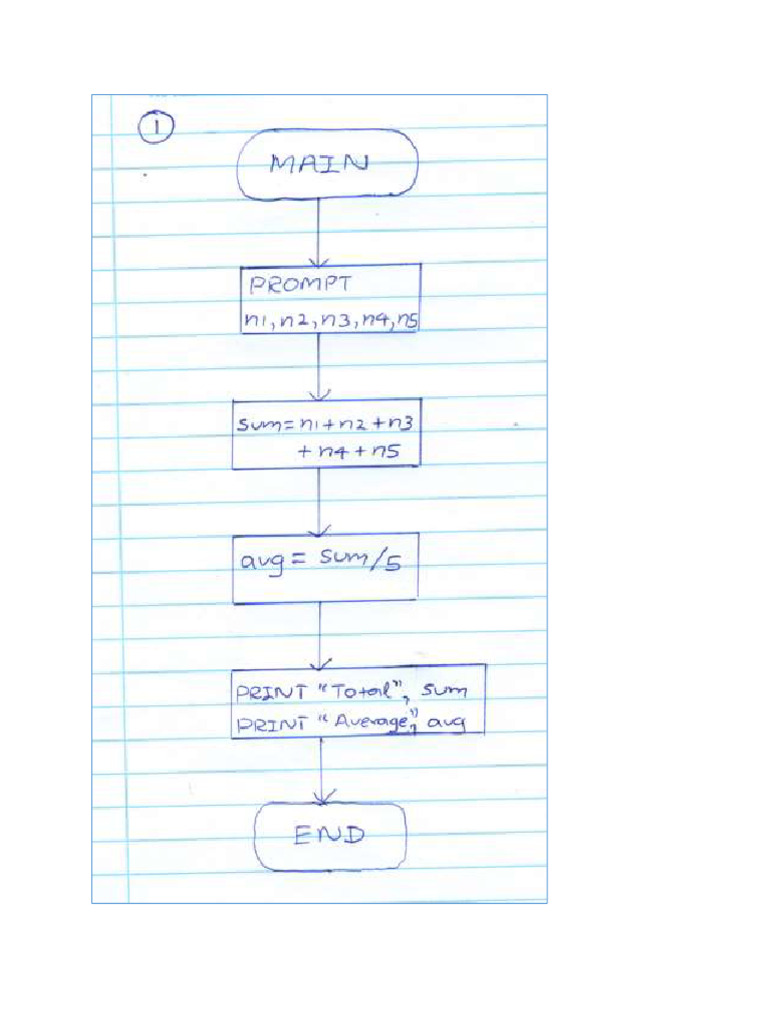 1
MAIN
PROMPT
n1, n2, n3, n4, n5
sum = n1 + n2 + n3
+ n4 + n5
avg = sum/5
PRINT "Total", sum
PRINT "Average", avg
END